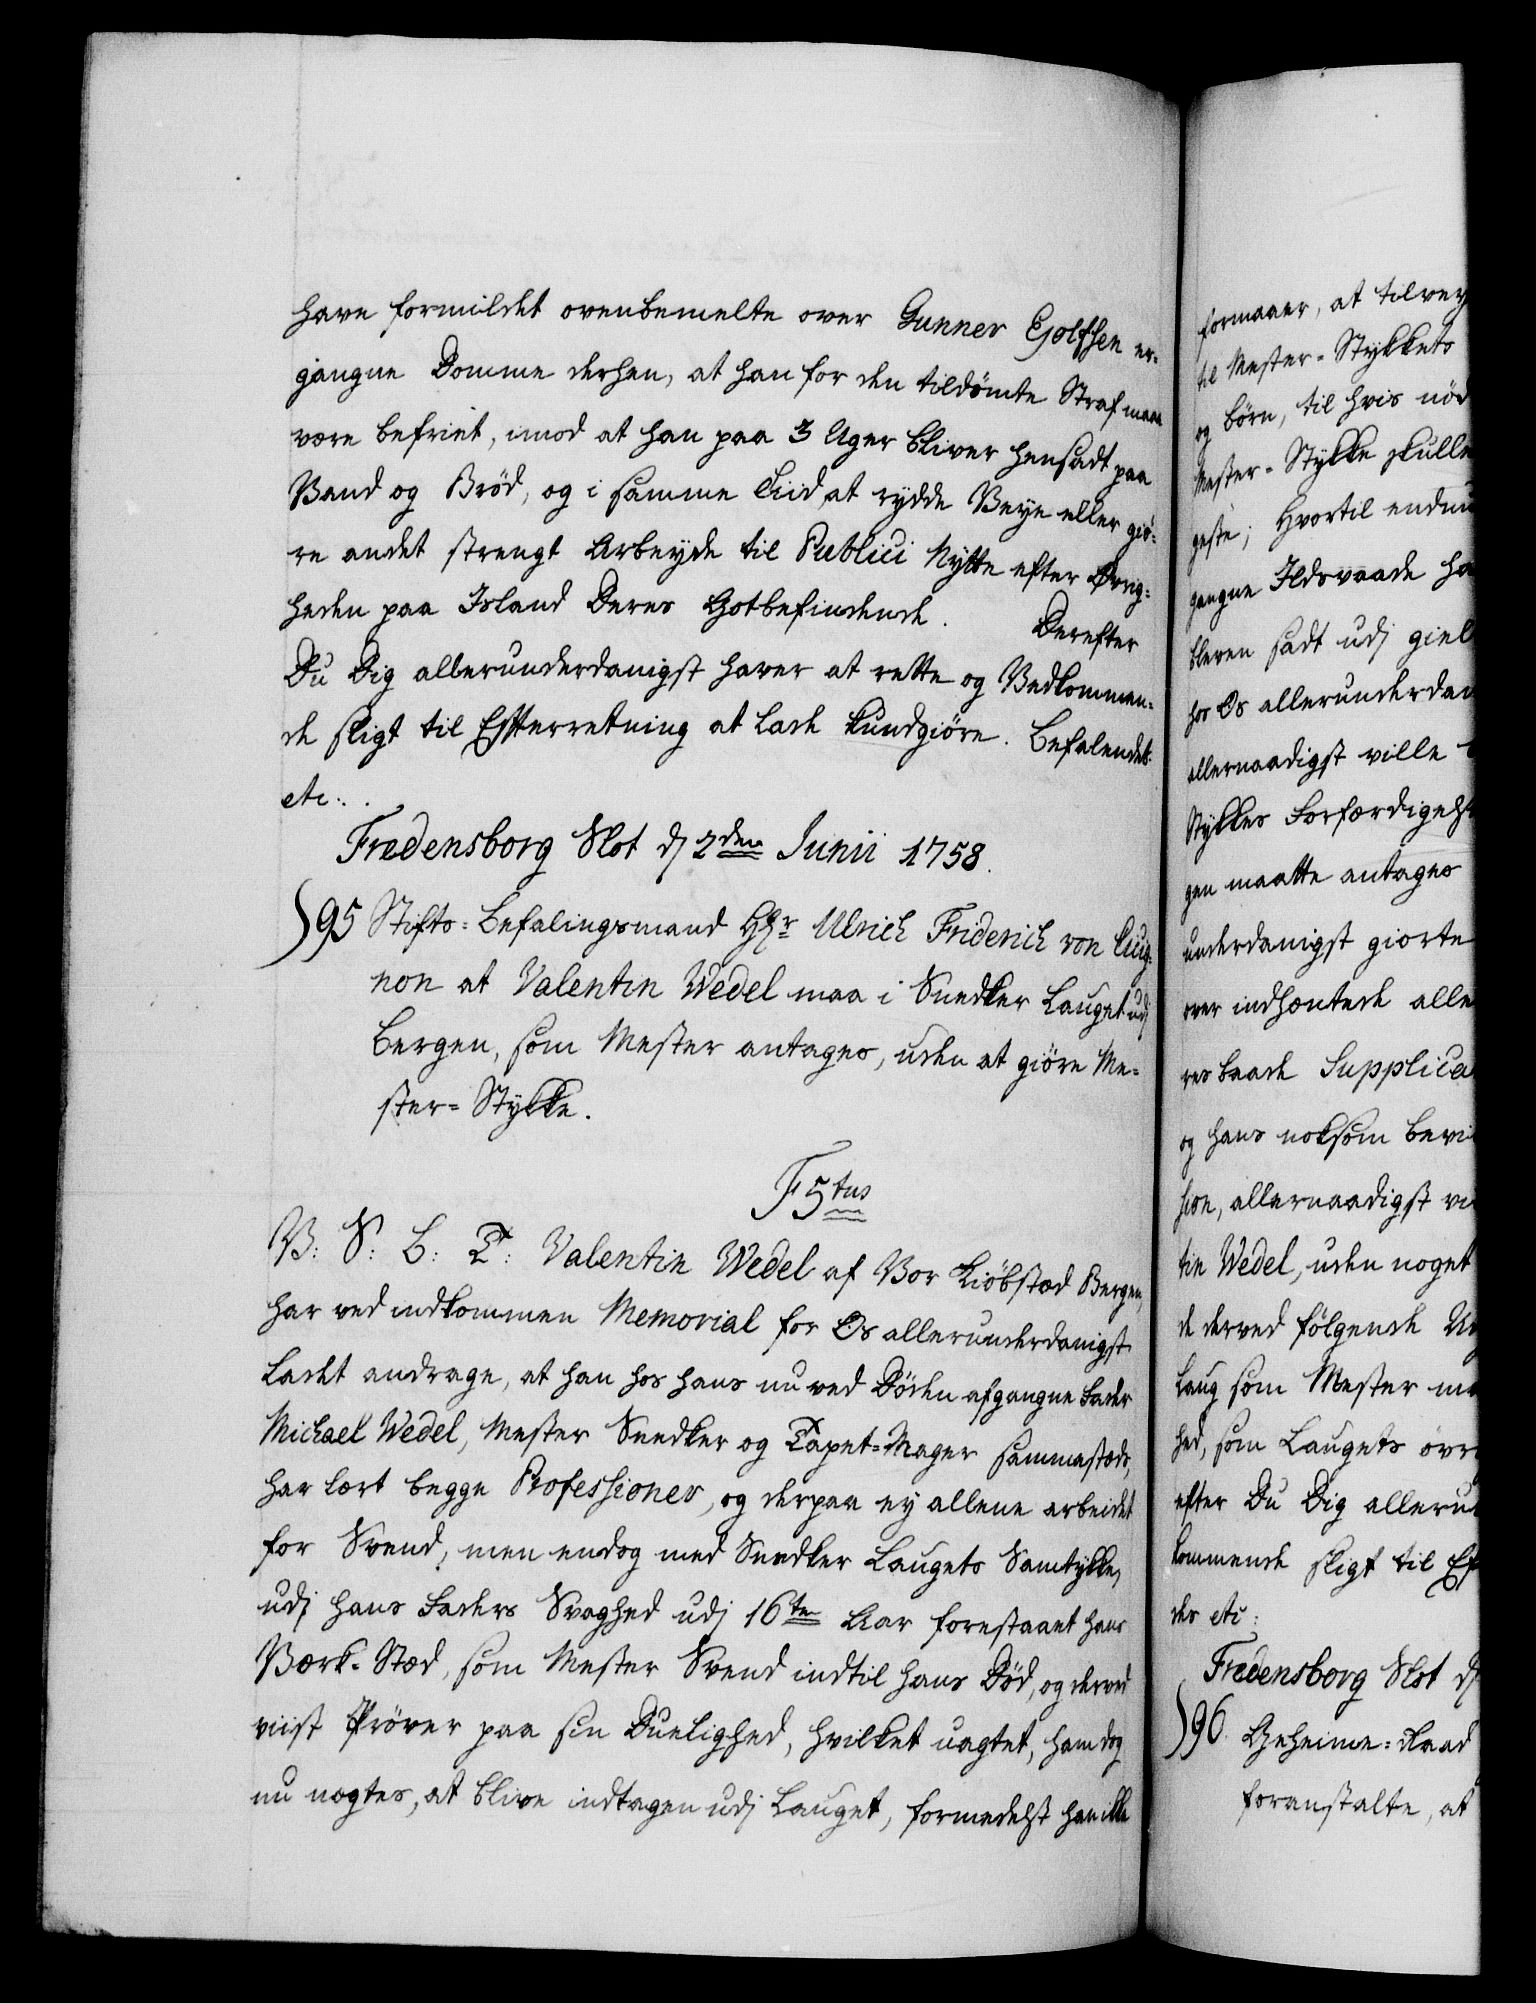 have formildet ovenbemelte over Gunner Ejolfsen er-
gangne Domme derhen, at han for den tildømte Straf maae
være befriet, imod at han paa 3 Uger bliver hensadt paa
Vand og Brød, og i samme Tiid, at rydde Veye eller giö-
re andet strengt Arbeyde til Publici Nytte efter Øvrig-
heden paa Island Deres Gotbefindende. Derefter
Du Dig allerunderdanigst haver at rette og Vedkommen-
de sligt til Efterretning at lade kundgiöre. Befalendes
etc:.
Fredensborg Slot d 2den Junii 1758.
95 Stifts-Befalingsmand HHr Ulrich Friderich von Cicig-
non at Valentin Wedel maa i Snedker Lauget udj
Bergen, som Mester antages, uden at giöre Me-
ster-Stykke.
F 5tus
V: S: B: T: Valentin Wedel af Vor Kiöbstæd Bergen,
har ved indkommen Memorial for Os allerunderdanigst
ladet andrage, at han hos hans nu ved Döden afgangne Fader
Michael Wedel, Mester Snedker og Tapet-Mager sammestæds,
har lært begge Professioner, og derpaa ey allene arbeidet
for Svend, men endog med Snedker Laugets Samtykke,
udj hans Faders Svaghed udj 16ten Aar forestaaet hans
Værk-Stæd, som Mester Svend indtil hans Död, og derved
viist Pröver paa sin Duelighed, hvilket uagtet, ham dog
nu nægtes, at blive indtagen udj Lauget, formedelst han ikke
formaaer, at tilvey
til Mester-Stykkets
og börn, til hvis nöd
Mester-Stykke skulle
geste; Hvortil endnu
gangne Ildsvaade ha
bleven sadt udj giel
hos Os allerunderdan
allernaadigst ville
Stykkes Forfærdigelse
gen maatte antages
underdanigst giorte
over indhæntede alle
res baade Supplica
og hans noksom bevi
sion, allernaadigst vi
tin Wedel, uden noget
de derved fölgende
Laug som Mester ma
hed, som Laugets övr
efter Du Dig alleru
kommende sligt til Ef
des etc:
Fredensborg Slot d
96. Geheime-Raad
foranstalte, at